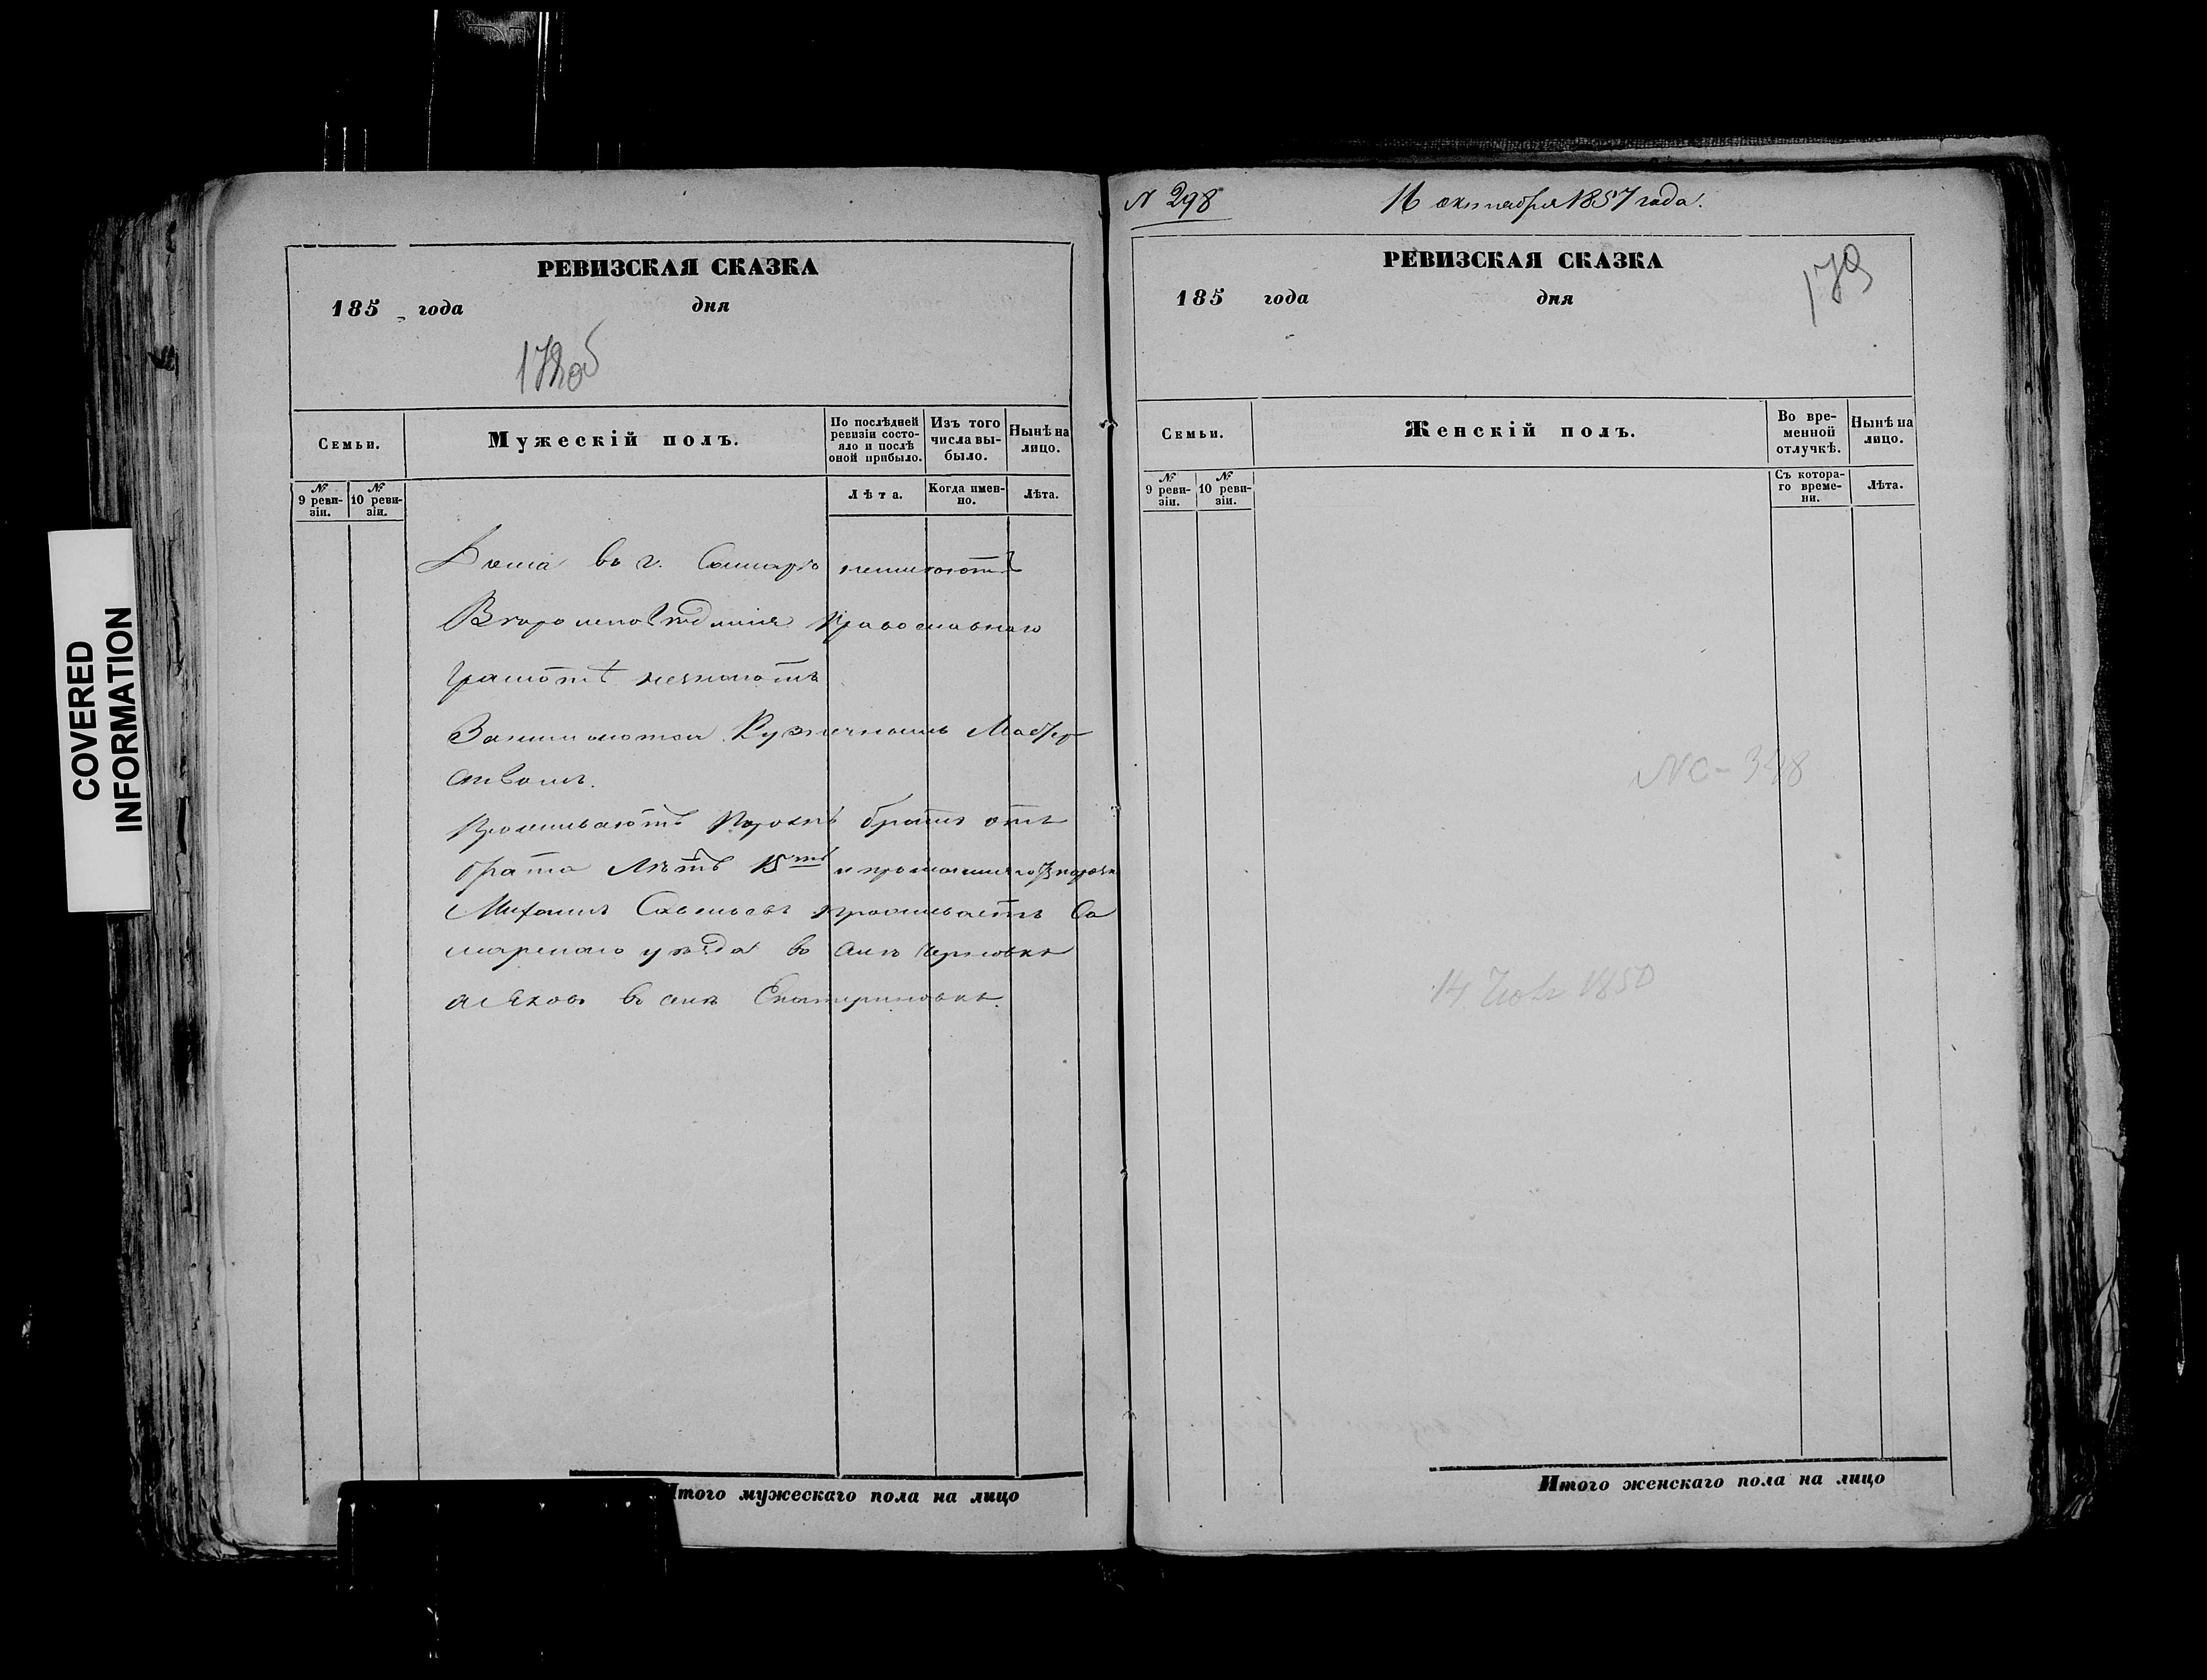 COVERED
INFORMATION
РЕВИЗСКАЯ СКАЗКА
185 года дня
178об
Семьи.
Мужескій полъ.
По послѣдней
ревизіи состо-
яло и послѣ
оной прибыло.
Изъ того
числа вы-
было.
Нынѣ на
лицо.
№
9 реви-
зіи.
№
10 реви-
зіи.
Лѣта.
Когда имен-
но.
Лѣта.
Дома въ г. Самарѣ неимеютъ
Вѣроисповѣданія православнаго
Грамотѣ незнаютъ
Занимаются Кузнечнымъ Мастер
ствомъ.
Проживаютъ порознь братъ отъ
брата Лѣтъ 15ть и проч
Михаилъ Савельевъ проживаетъ Са
марскаго уѣзда въ селѣ Черновкѣ
а Яковъ въ селѣ Екатериновкѣ.
Итого мужескаго пола на лицо
N 298
16 октября 1857 года.
РЕВИЗСКАЯ СКАЗКА
179
185 года дня
Семьи.
Женскій полъ.
Во вре-
менной
отлучкѣ.
Нынѣ на
лицо.
№
9 реви-
зіи.
№
10 реви-
зіи.
Съ котора-
го време-
ни.
Лѣта.
14 1850
Итого женскаго пола на лицо